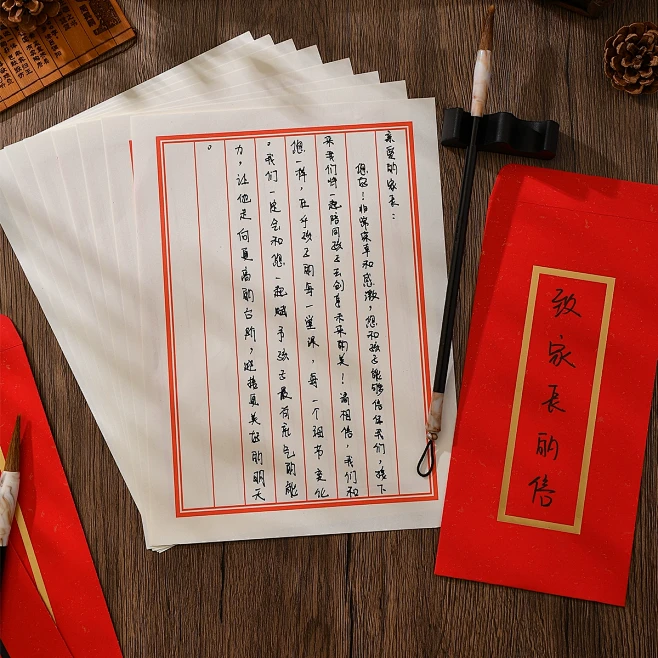 亲爱的家长：
您好！非常荣幸和感激，您和孩子能够信任我们，接下
来我们将一起陪同孩子去创享未来的美！请相信，我们和
您一样，在乎孩子的每一堂课，每一个细节变化
。我们一定会和您一起赋予孩子最有底气的能
力，让他走向更高的台阶，迎接更美好的明天
。
致家长的信